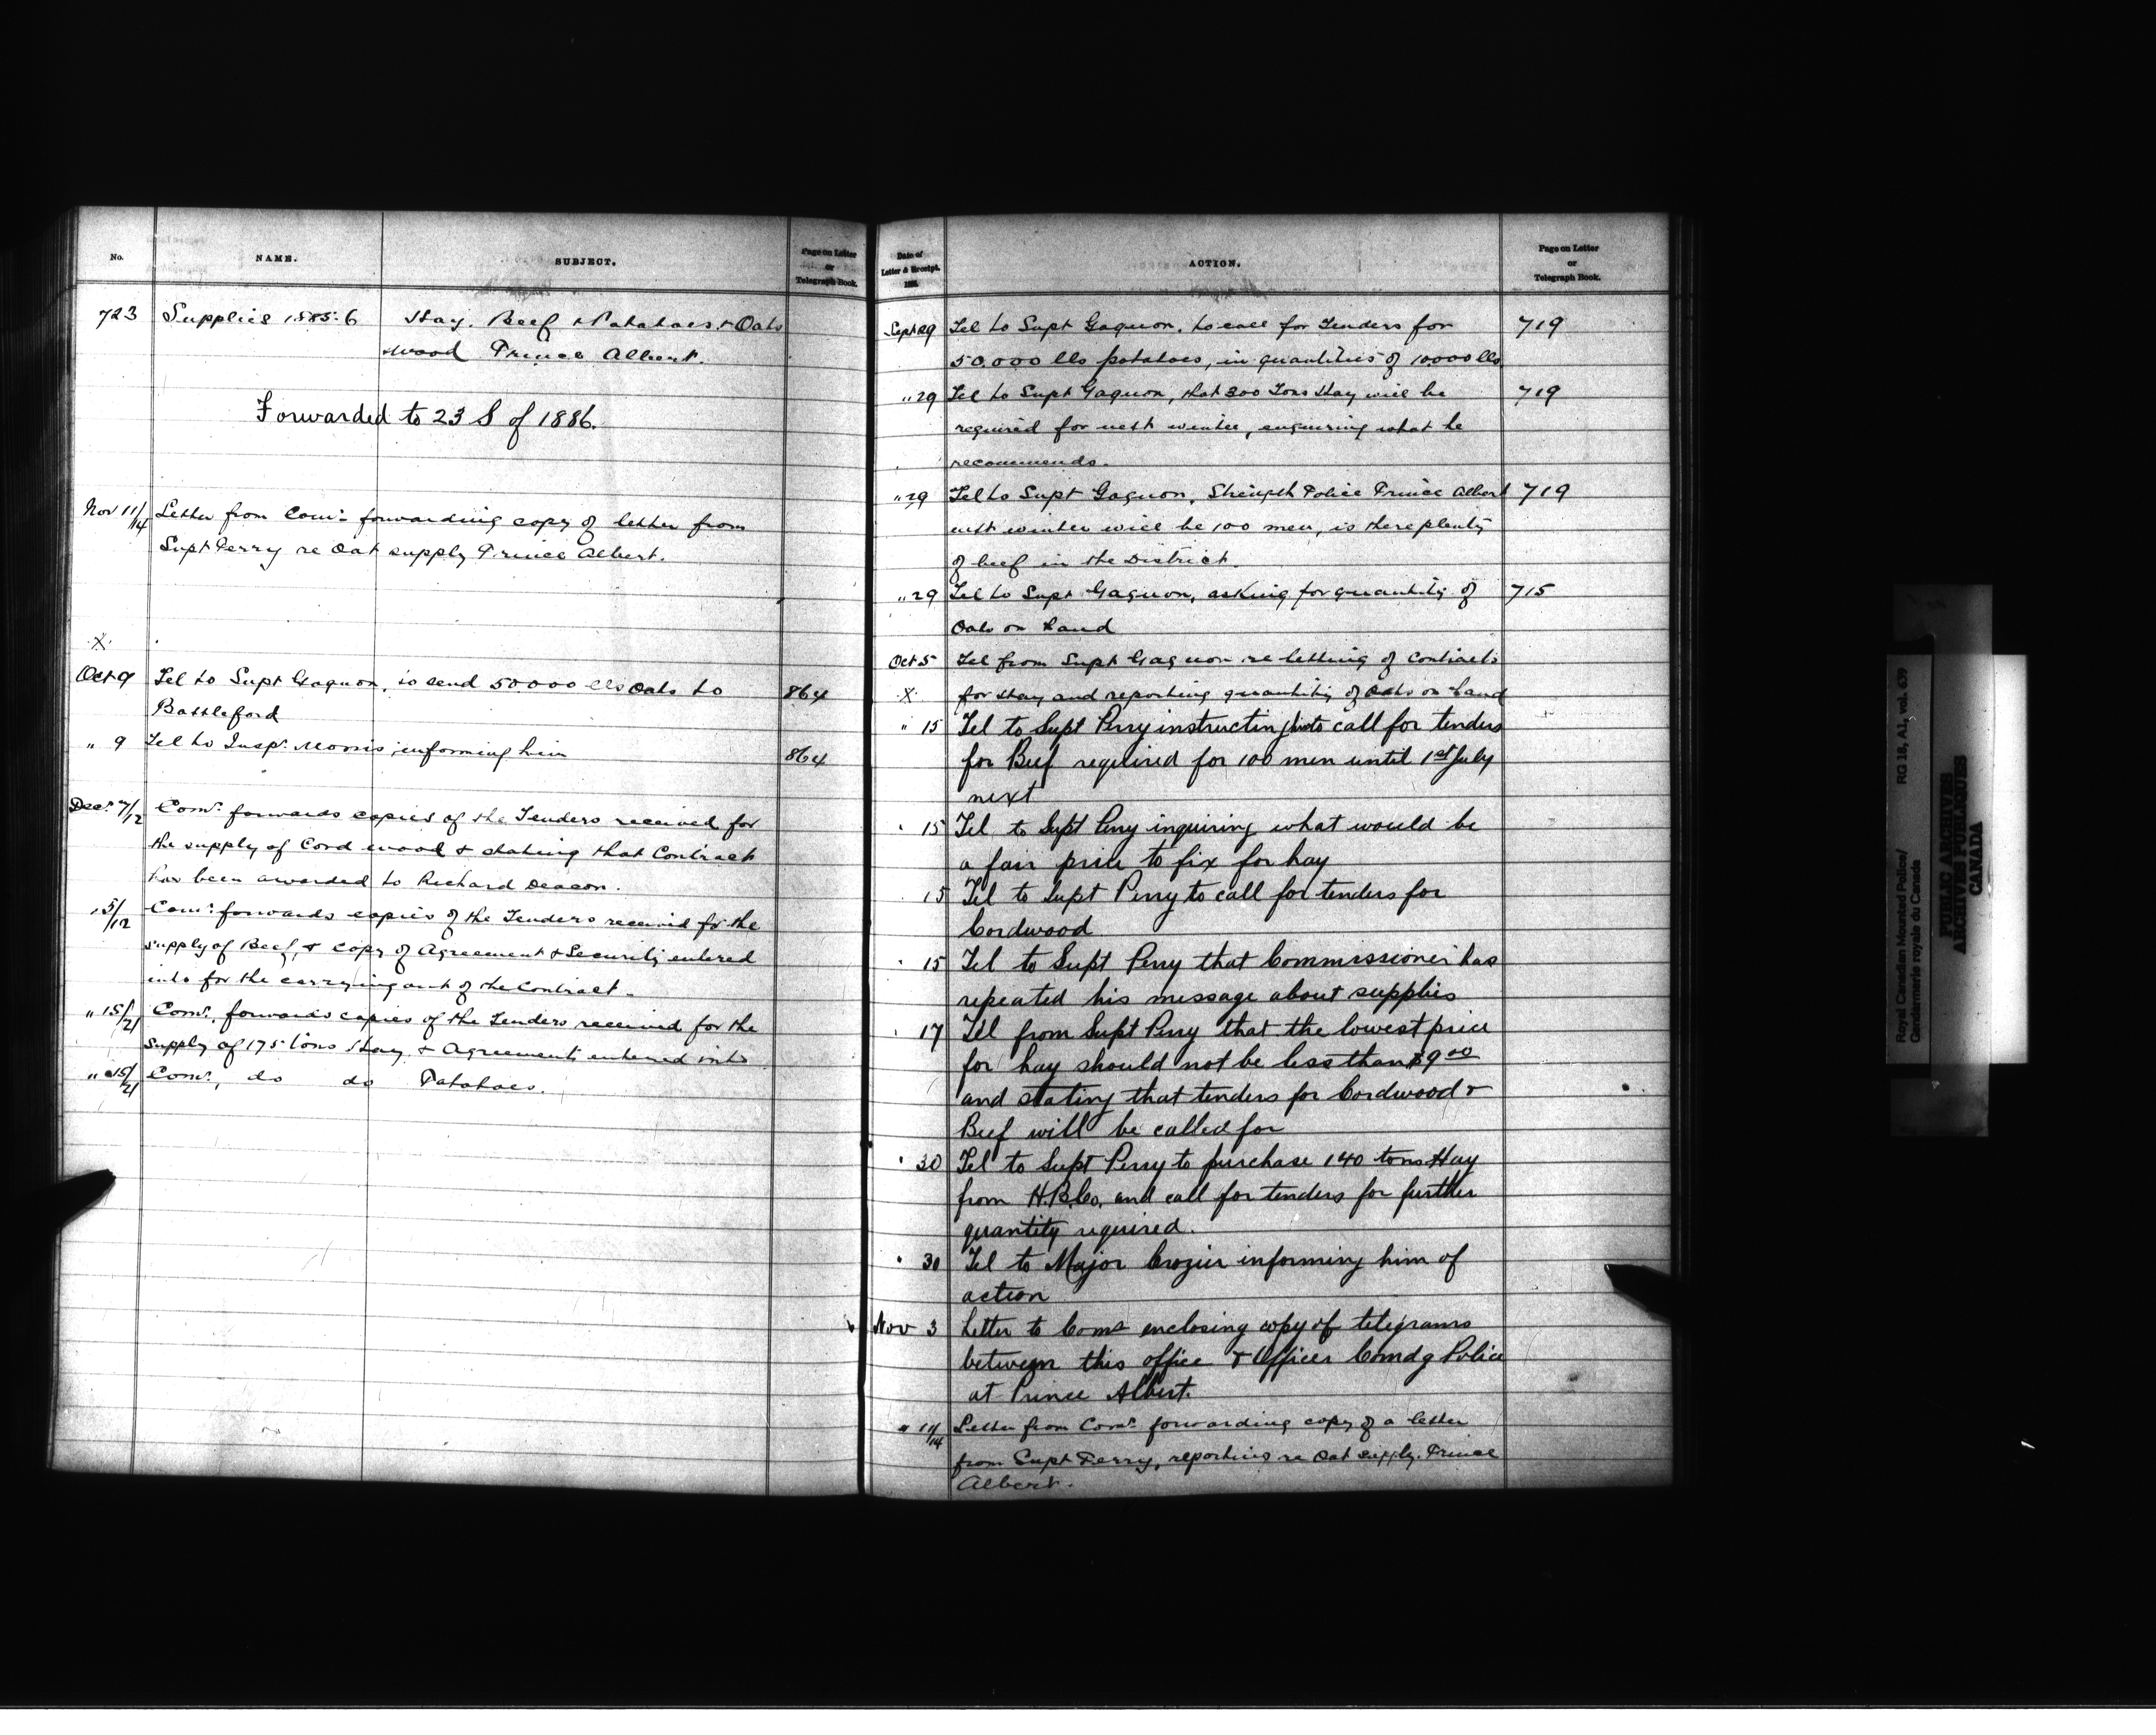 No. NAME. SUBJECT. Page on Letter or Telegraph Book.
723 Supplies 1885-6 Hay. Beef & Potatoes & Oats
Wood Prince Albert.
Forwarded to 23 S of 1886.
Nov 11/14 Letter from Comr. forwarding copy of letter from
Supt Perry re Oat supply Prince Albert.
X
Oct 9 Tel to Supt Gagnon, to send 50000 lbs Oats to 864
Battleford
" 9 Tel to Inspr. Morris informing him 864
Decr. 7/12 Comr. forwards copies of the Tenders received for
the supply of Cord wood & stating that Contract
has been awarded to Richard Deacon.
" 5/12 Comr. forwards copies of the Tenders received for the
supply of Beef, & copy of Agreement & Security entered
into for the carrying out of the Contract.
" 15/21 Comr. forwards copies of the Tenders received for the
supply of 175 tons Hay & Agreement entered into
" 15/21 Comr., do do Potatoes.
Date of Letter & Receipt. 188 . ACTION. Page on Letter or Telegraph Book.
Sept 29 Tel to Supt Gagnon, to call for Tenders for 719
50.000 lbs potatoes, in quantities of 10000 lbs.
" 29 Tel to Supt Gagnon, that 300 Tons Hay will be 719
required for next winter, enquiring what he
recommends.
" 29 Tel to Supt Gagnon, Strength Police Prince Albert 719
next winter will be 100 men, is there plenty
of beef in the District.
" 29 Tel to Supt Gagnon, asking for quantity of 715
Oats on hand
Oct 5 Tel from Supt Gagnon re letting of Contracts
X for Hay and reporting quantity of Oats on hand
" 15 Tel to Supt Perry instructing him to call for tenders
for Beef required for 100 men until 1st July
next
" 15 Tel to Supt Perry inquiring what would be
a fair price to fix for hay
15 Tel to Supt Perry to call for tenders for
Cordwood
" 15 Tel to Supt Perry that Commissioner has
repeated his message about supplies
" 17 Tel from Supt Perry that the lowest price
for hay should not be less than $9 00
and stating that tenders for Cordwood &
Beef will be called for
" 30 Tel to Supt Perry to purchase 140 tons Hay
from H.B.Co. and call for tenders for further
quantity required.
" 30 Tel to Major Crozier informing him of
action
Nov 3 Letter to Comr enclosing copy of telegrams
between this office & Officer Comdg Police
at Prince Albert.
" 11/14 Letter from Comr. forwarding copy of a letter
from Supt Perry, reporting re Oat supply. Prince
Albert.
Royal Canadian Mounted Police/ RG 18, A1, vol. 639
Gendarmerie royale du Canada
PUBLIC ARCHIVES
ARCHIVES PUBLIQUES
CANADA